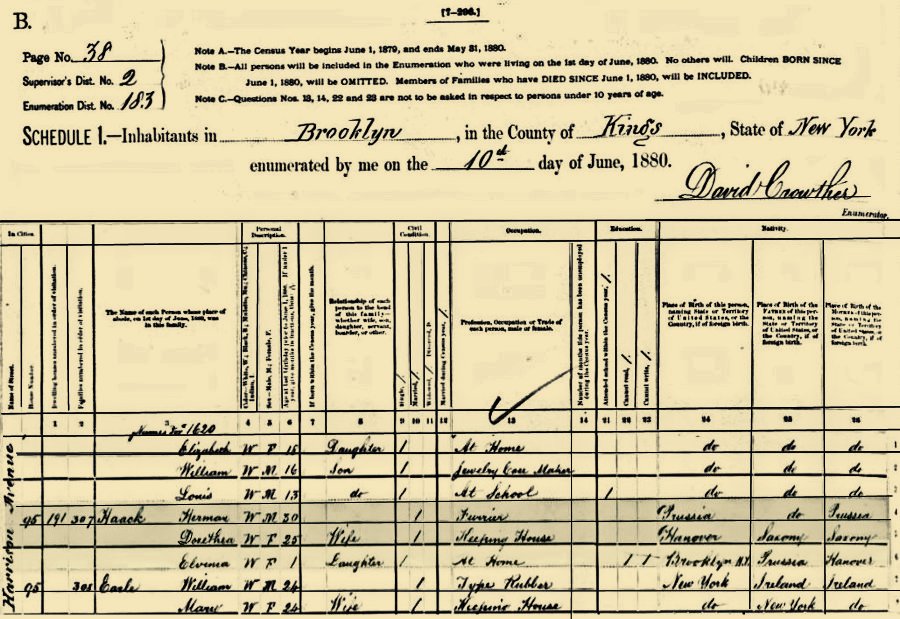 B.
[7-296.]
Page No. 38
Supervisor's Dist. No. 2
Enumeration Dist. No. 183
Note A.—The Census Year begins June 1, 1879, and ends May 31, 1880.
Note B.—All persons will be included in the Enumeration who were living on the 1st day of June, 1880. No others will. Children BORN SINCE
June 1, 1880, will be OMITTED. Members of Families who have DIED SINCE June 1, 1880, will be INCLUDED.
Note C.—Questions Nos. 13, 14, 22 and 23 are not to be asked in respect to persons under 10 years of age.
SCHEDULE 1.—Inhabitants in Brooklyn, in the County of Kings, State of New York
enumerated by me on the 10th day of June, 1880.
David Crowther
Enumerator.
In Cities
Personal Description.
Civil Condition.
Occupation.
Education.
Nativity.
Name of Street.
House Number.
Dwelling houses numbered in order of visitation.
Families numbered in order of visitation.
The Name of each Person whose place of abode, on 1st day of June, 1880, was in this family.
Sex—Male, M.; Female, F.
If born within the Census year, give the month.
Relationship of each person to the head of this family—whether wife, son, daughter, servant, boarder, or other.
Single, /.
Married, /.
Married during Census year, /.
Profession, Occupation or Trade of each person, male or female.
Number of months this person has been unemployed during the Census year.
Attended school within the Census year, /.
Cannot read, /.
Cannot write, /.
Place of Birth of this person, naming State or Territory of United States, or the Country, if of foreign birth.
Place of Birth of the FATHER of this person, naming the State or Territory of United States, or the Country, if of foreign birth.
Place of Birth of the MOTHER of this person, naming the State or Territory of United States, or the Country, if of foreign birth.
1 2 3 4 5 6 7 8 9 10 11 12 13 14 21 22 23 24 25 26
1620
Harrison Avenue
Elizabeth W F 18 Daughter / At Home do do do
William W M 16 Son / Jewelry Case Maker do do do
Louis W M 13 do / At School / do do do
95 191 307 Haack Herman W M 30 / Furrier Prussia do Prussia
Dorethea W F 25 Wife / Keeping House Hanover Saxony Saxony
Elvena W F 1 Daughter / At Home / / Brooklyn N.Y. Prussia Hanover
95 308 Earle William W M 24 / Type Rubber New York Ireland Ireland
Marie W F 24 Wife / Keeping House do New York do